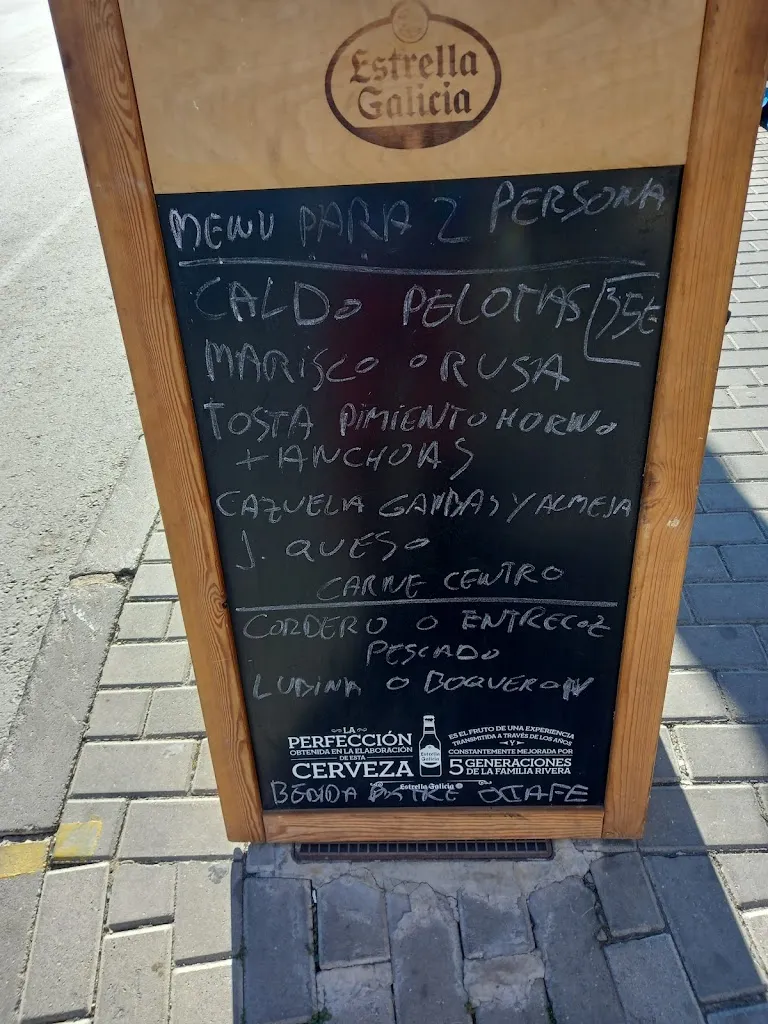 Estrella
Galicia
MENU PARA 2 PERSONA
CALDO PELOTAS 35€
MARISCO O RUSA
TOSTA PIMIENTO HORNO
+ ANCHOAS
CAZUELA GAMBAS Y ALMEJA
J. QUESO
CARNE CENTRO
CORDERO O ENTRECOZ
PESCADO
LUBINA O BOQUERON
LA
PERFECCIÓN
OBTENIDA EN LA ELABORACIÓN
DE ESTA
CERVEZA
Estrella
Galicia
ES EL FRUTO DE UNA EXPERIENCIA
TRANSMITIDA A TRAVÉS DE LOS AÑOS
Y
CONSTANTEMENTE MEJORADA POR
5 GENERACIONES
DE LA FAMILIA RIVERA
Estrella Galicia
BEBIDA POSTRE CAFE